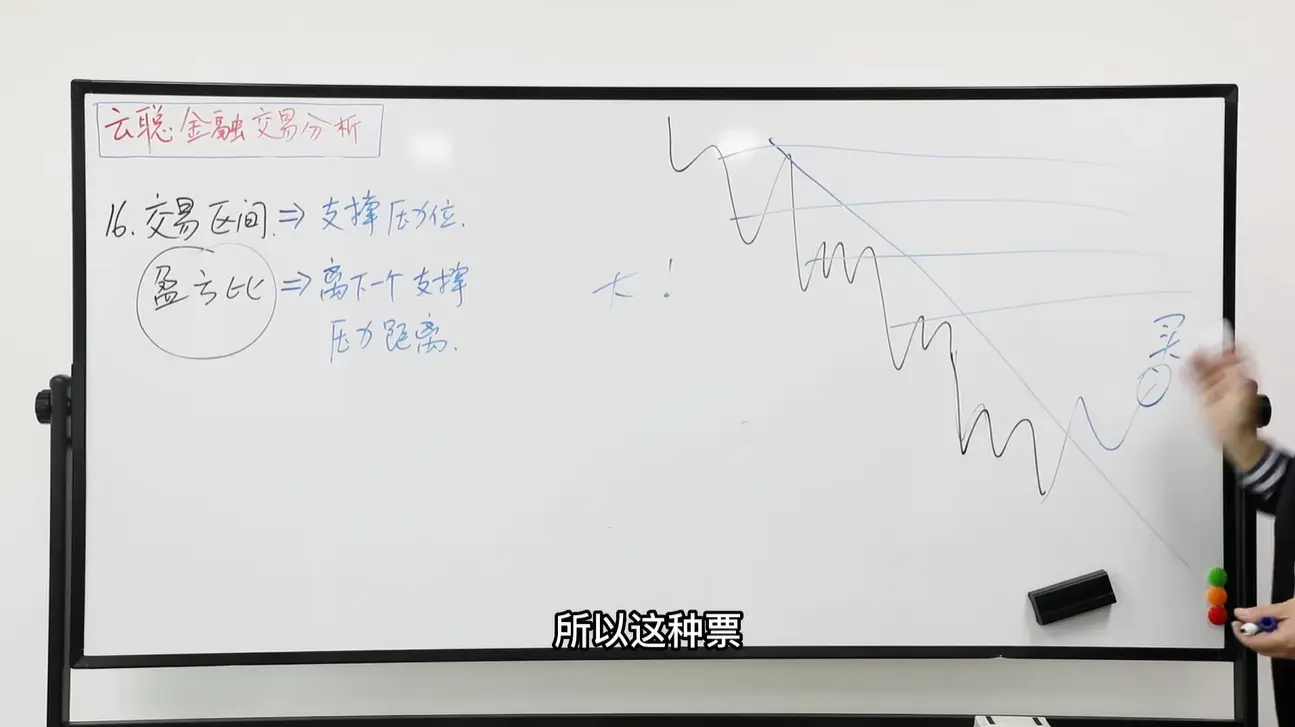 云聪金融交易分析
16.交易区间⇒支撑压力位.
盈亏比⇒离下一个支撑
压力距离.
大！
买
所以这种票